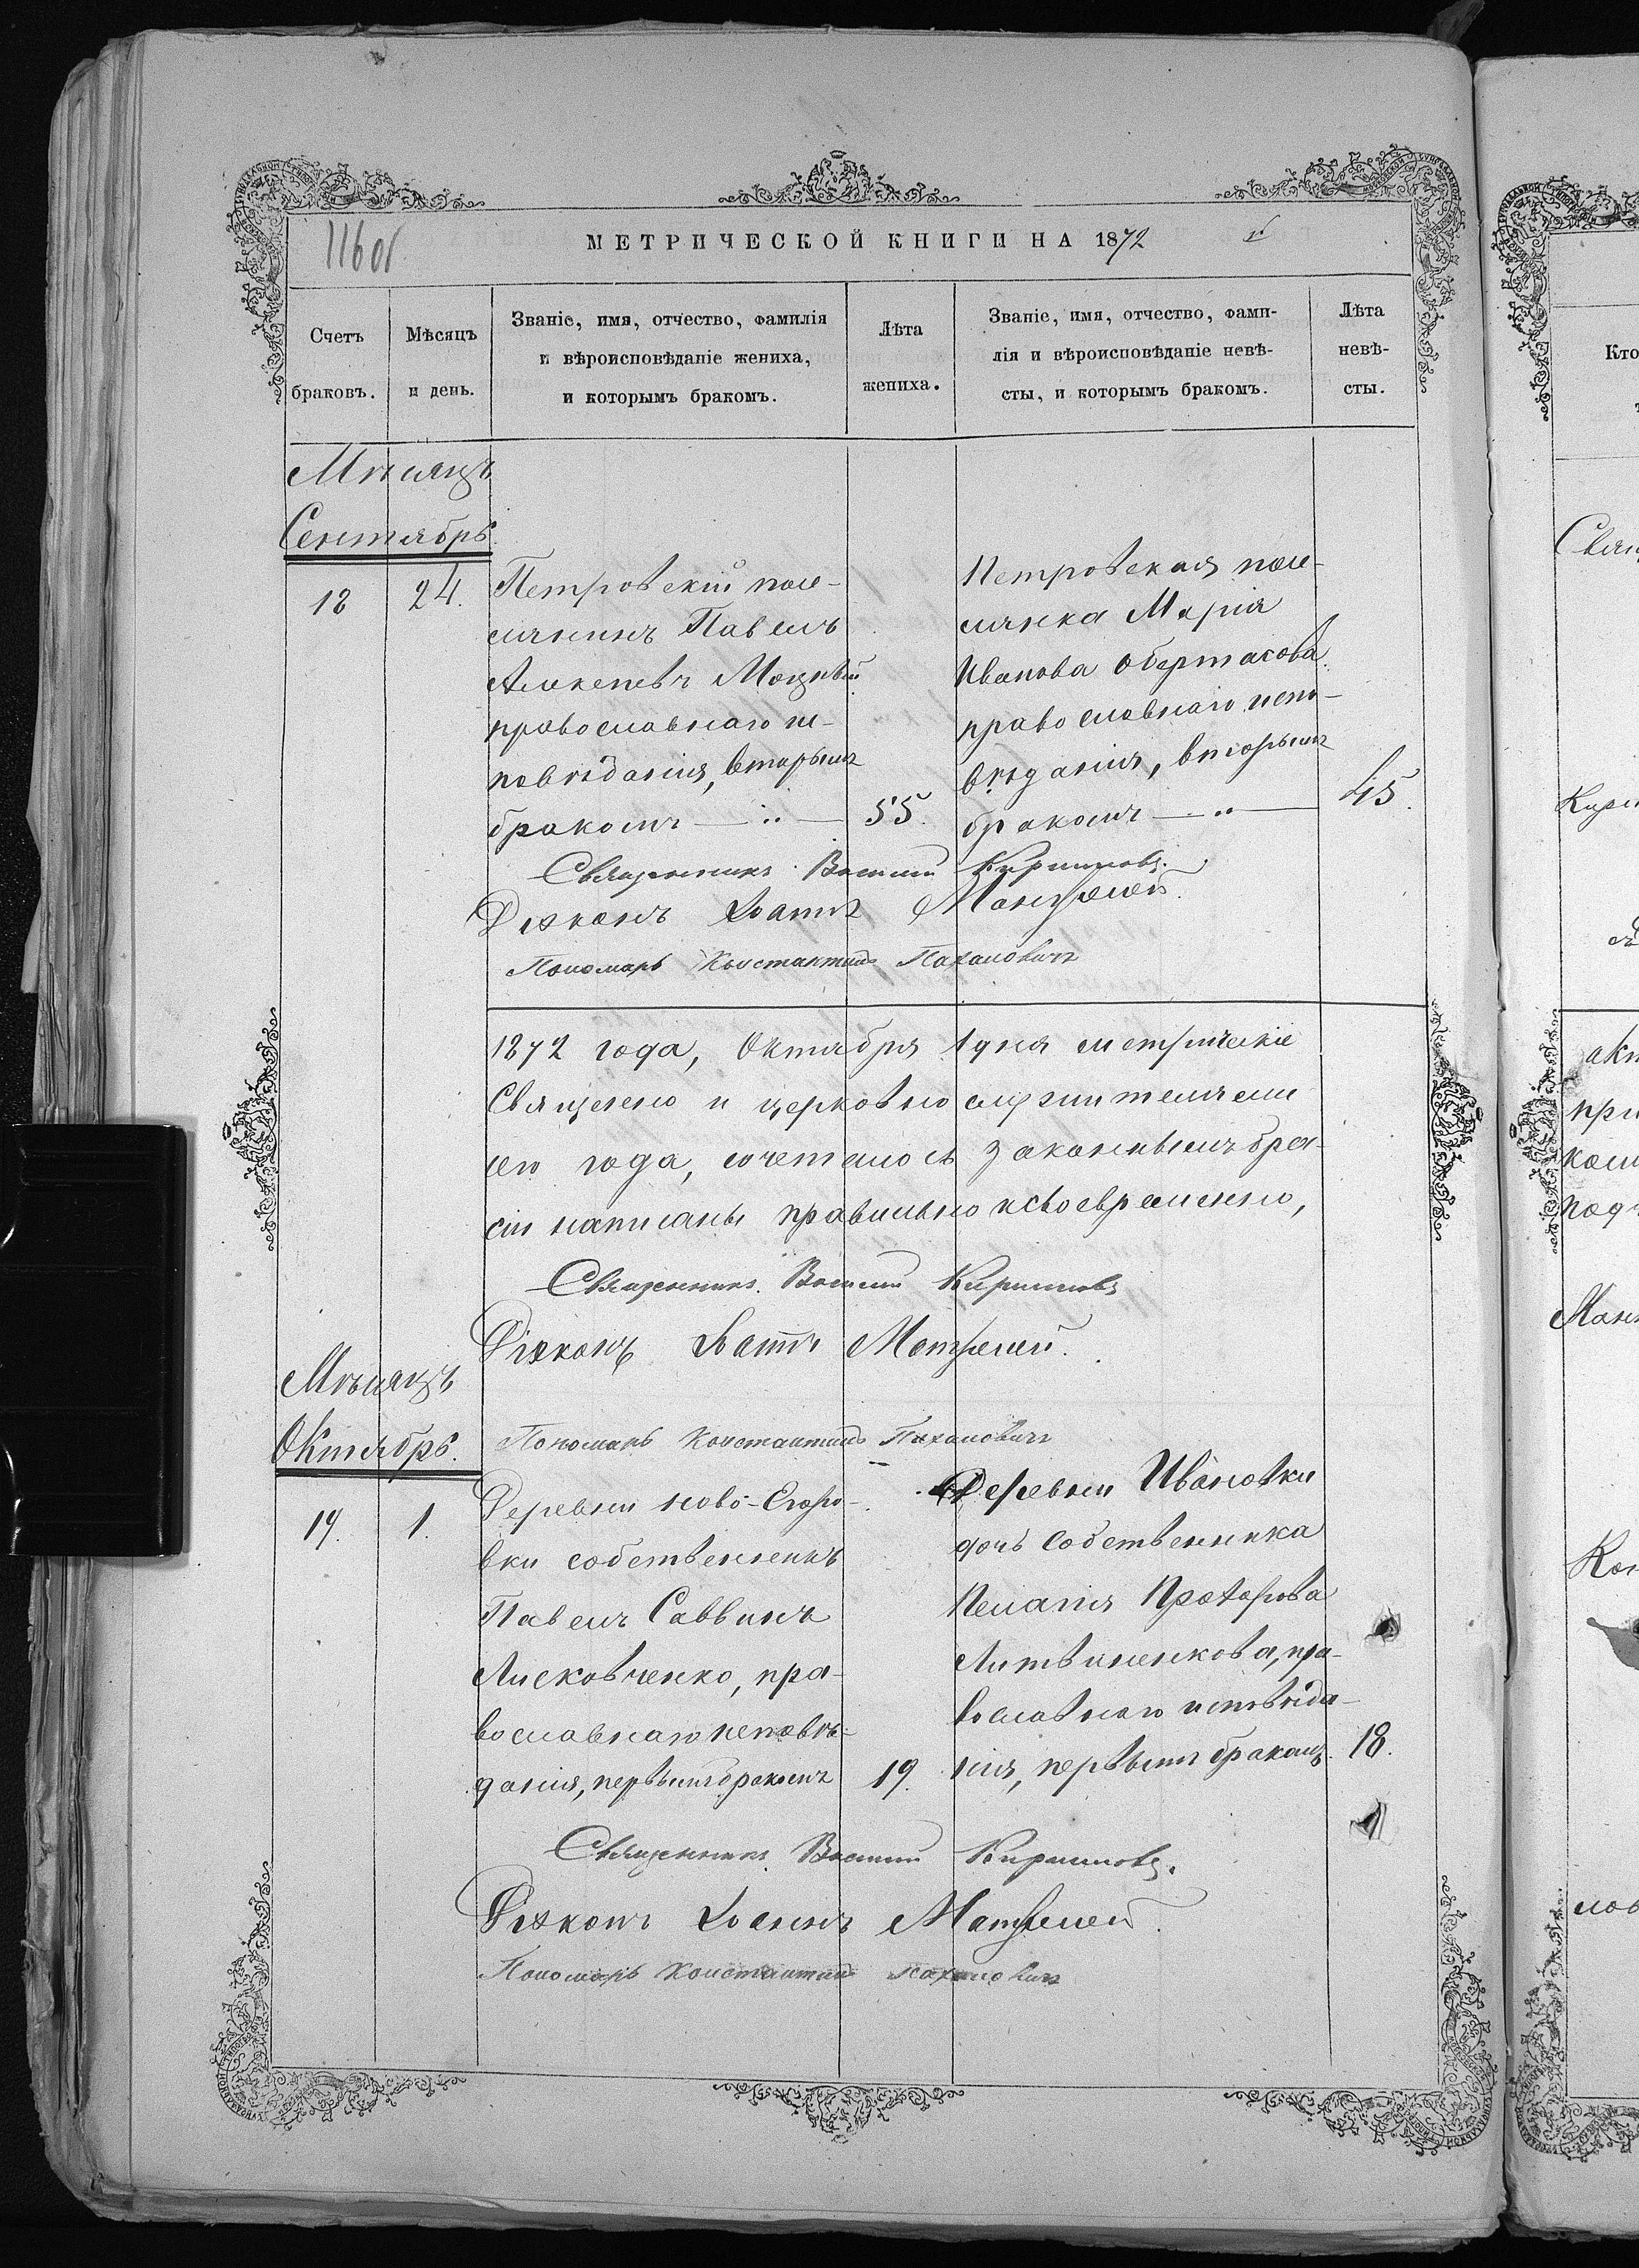 116об
МЕТРИЧЕСКОЙ КНИГИ НА 1872
Счетъ браковъ.
Мѣсяцъ и день.
Званіе, имя, отчество, фамилія
и вѣроисповѣданіе жениха,
и которымъ бракомъ.
Лѣта жениха.
Званіе, имя, отчество, фами-
лія и вѣроисповѣданіе невѣ-
сты, и которымъ бракомъ.
Лѣта невѣ-
сты.
Мѣсяцъ
Сентябрь
18 24.
Петровскій посе-
лянинъ Павелъ
православнаго ис-
повѣданія, вторымъ
бракомъ
55.
Петровская посе-
лянка Марія
Иванова Обертасова
православнаго испо-
вѣданія, вторымъ
бракомъ
45.
Священникъ Василій Кириловъ.
Діаконъ Іоаннъ
Пономарь Константинъ Пахаловичъ
1872 года, Октября 1 дня метрическіе
Священно и церковно служителями
сего года, сочеталось законнымъ бра-
сіи написаны правильно и своевременно,
Священникъ Василій Кириловъ
Діаконъ Іоаннъ
Мѣсяцъ
Октябрь.
Пономарь Константинъ Пахаловичъ
19. 1.
Деревни Ново-Егоро-
вки собственникъ
Павелъ Саввинъ
Лисковченко, пра-
вославнаго исповѣ-
данія, первымъ бракомъ
19.
Деревни Ивановки
дочь собственника
Пелагія Прохорова
Литвиненкова, пра-
вославнаго исповѣда-
нія, первымъ бракомъ.
18.
Священникъ Василій Кириловъ.
Діаконъ Іоаннъ
Пономарь Константинъ Пахаловичъ